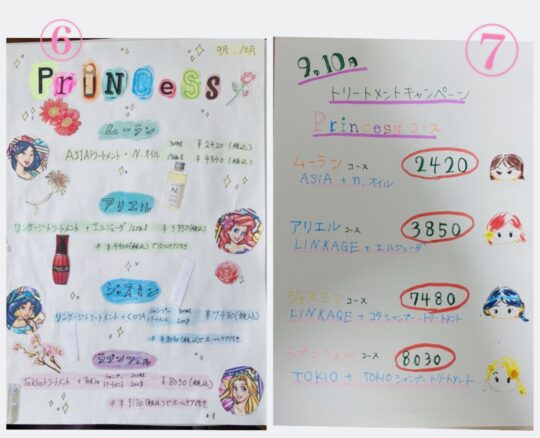 ⑥
9月.10月
PRiNCeSS
ムーラン
ASIAトリートメント + N.オイル
¥2420(税込)
¥4840(税込)
アリエル
リンケージトリートメント + エルジューダ
¥3850(税込)
ジャスミン
リンケージトリートメント + COTA
¥7480(税込)
ラプンツェル
TOKIOトリートメント + TOKIO
¥8030(税込)
¥9130(税込)でホームケア付き
⑦
9.10月
トリートメントキャンペーン
Princessコース
ムーラン コース 2420
ASIA + n.オイル
アリエル コース 3850
LINKAGE + エルジューダ
ジャスミン コース 7480
LINKAGE + コタシャンプー・トリートメント
ラプンツェル コース 8030
TOKIO + TOKIOシャンプートリートメント